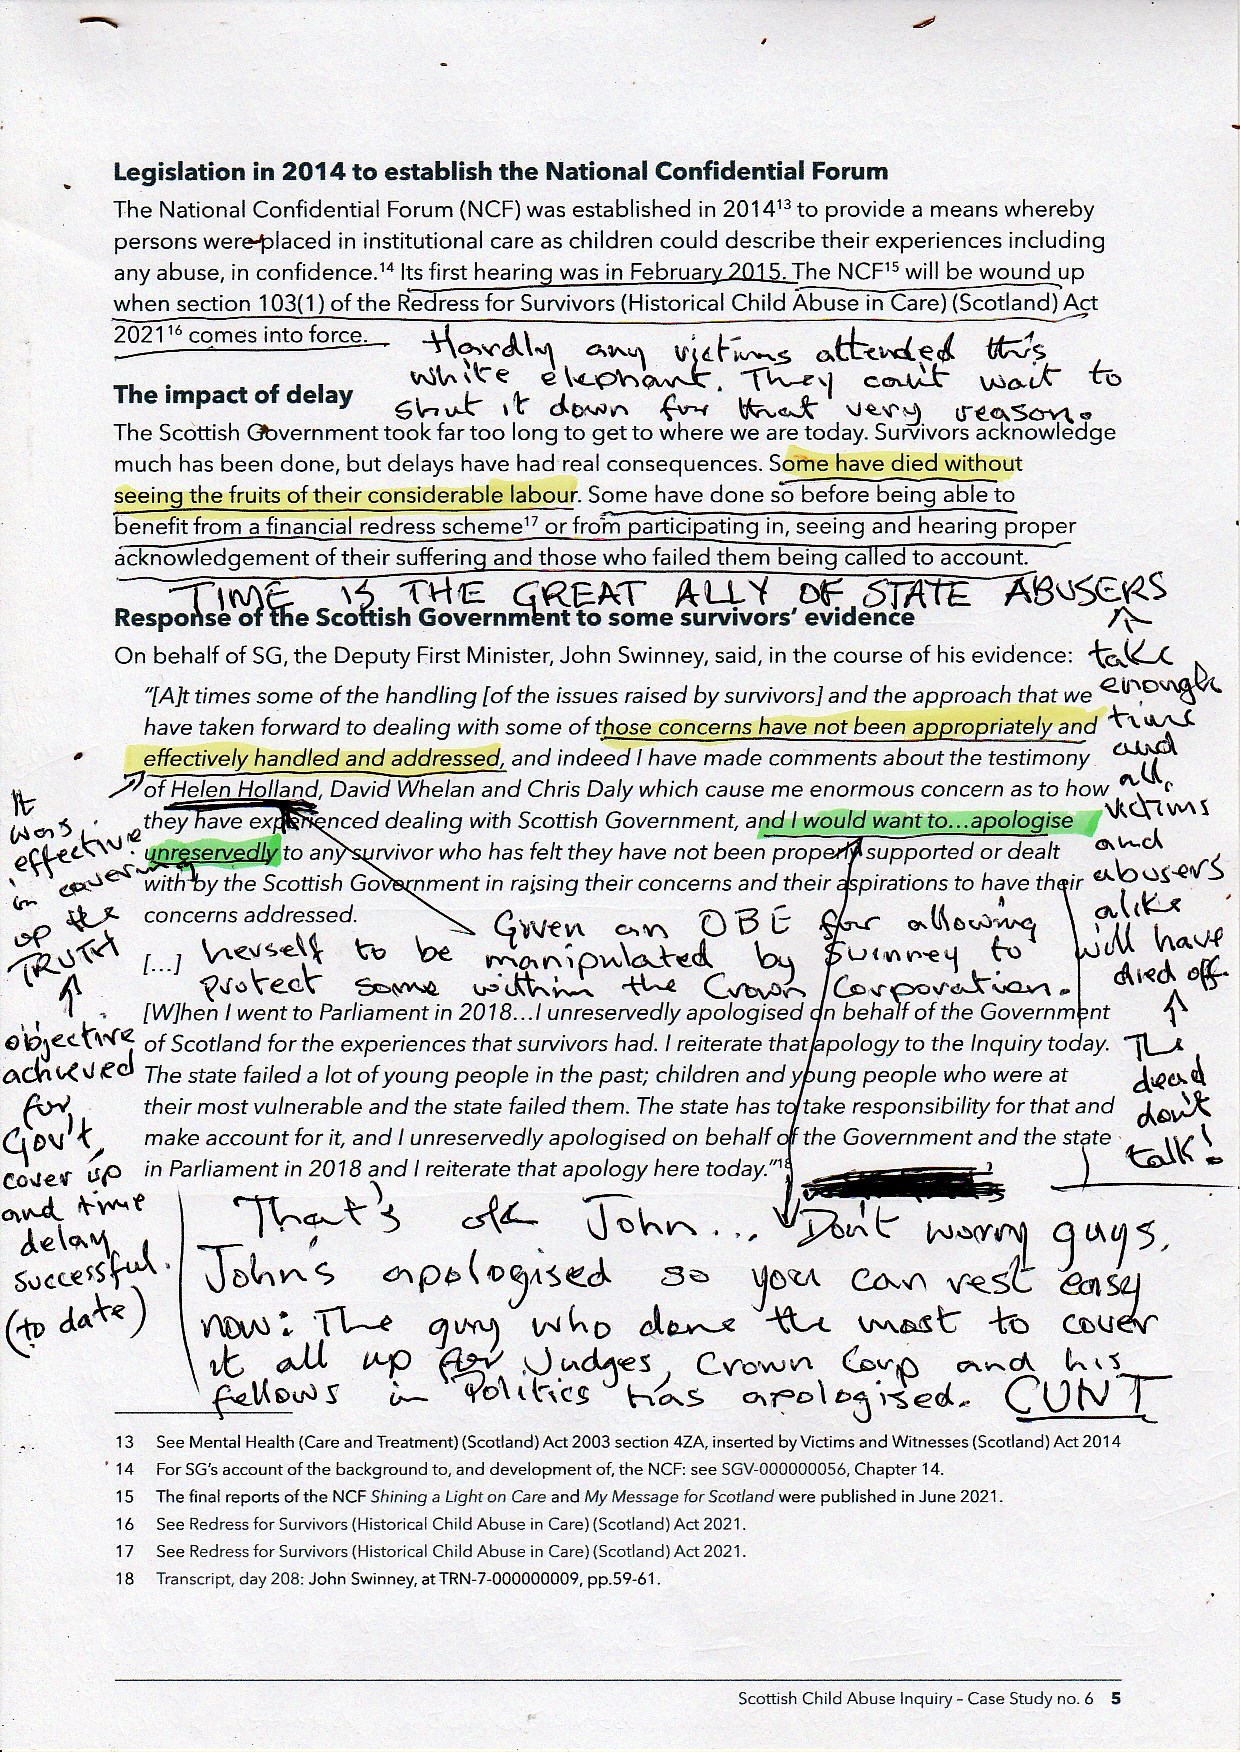 Legislation in 2014 to establish the National Confidential Forum
The National Confidential Forum (NCF) was established in 2014¹³ to provide a means whereby
persons were placed in institutional care as children could describe their experiences including
any abuse, in confidence.¹⁴ Its first hearing was in February 2015. The NCF¹⁵ will be wound up
when section 103(1) of the Redress for Survivors (Historical Child Abuse in Care) (Scotland) Act
2021¹⁶ comes into force.
Hardly any victims attended this
white elephant. They can't wait to
shut it down for that very reason.
The impact of delay
The Scottish Government took far too long to get to where we are today. Survivors acknowledge
much has been done, but delays have had real consequences. Some have died without
seeing the fruits of their considerable labour. Some have done so before being able to
benefit from a financial redress scheme¹⁷ or from participating in, seeing and hearing proper
acknowledgement of their suffering and those who failed them being called to account.
TIME IS THE GREAT ALLY OF STATE ABUSERS
Response of the Scottish Government to some survivors' evidence
On behalf of SG, the Deputy First Minister, John Swinney, said, in the course of his evidence:
"[A]t times some of the handling [of the issues raised by survivors] and the approach that we
have taken forward to dealing with some of those concerns have not been appropriately and
effectively handled and addressed, and indeed I have made comments about the testimony
of Helen Holland, David Whelan and Chris Daly which cause me enormous concern as to how
they have experienced dealing with Scottish Government, and I would want to…apologise
unreservedly to any survivor who has felt they have not been properly supported or dealt
with by the Scottish Government in raising their concerns and their aspirations to have their
concerns addressed.
Given an OBE for allowing
[…] herself to be manipulated by Swinney to
protect some within the Crown Corporation.
[W]hen I went to Parliament in 2018…I unreservedly apologised on behalf of the Government
of Scotland for the experiences that survivors had. I reiterate that apology to the Inquiry today.
The state failed a lot of young people in the past; children and young people who were at
their most vulnerable and the state failed them. The state has to take responsibility for that and
make account for it, and I unreservedly apologised on behalf of the Government and the state
in Parliament in 2018 and I reiterate that apology here today."¹⁸
take
enough
time
and
all
victims
and
abusers
alike
will have
died off.
The
dead
don't
talk!
It
was
effective
in covering
up the
TRUTH
objective
achieved
for
Gov't,
cover up
and time
delay
successful.
(to date)
That's ok John... Don't worry guys,
John's apologised so you can rest easy
now: The guy who done the most to cover
it all up for Judges, Crown Corp and his
fellows in Politics has apologised. CUNT
13 See Mental Health (Care and Treatment) (Scotland) Act 2003 section 4ZA, inserted by Victims and Witnesses (Scotland) Act 2014
14 For SG's account of the background to, and development of, the NCF: see SGV-000000056, Chapter 14.
15 The final reports of the NCF Shining a Light on Care and My Message for Scotland were published in June 2021.
16 See Redress for Survivors (Historical Child Abuse in Care) (Scotland) Act 2021.
17 See Redress for Survivors (Historical Child Abuse in Care) (Scotland) Act 2021.
18 Transcript, day 208: John Swinney, at TRN-7-000000009, pp.59-61.
Scottish Child Abuse Inquiry – Case Study no. 6 5